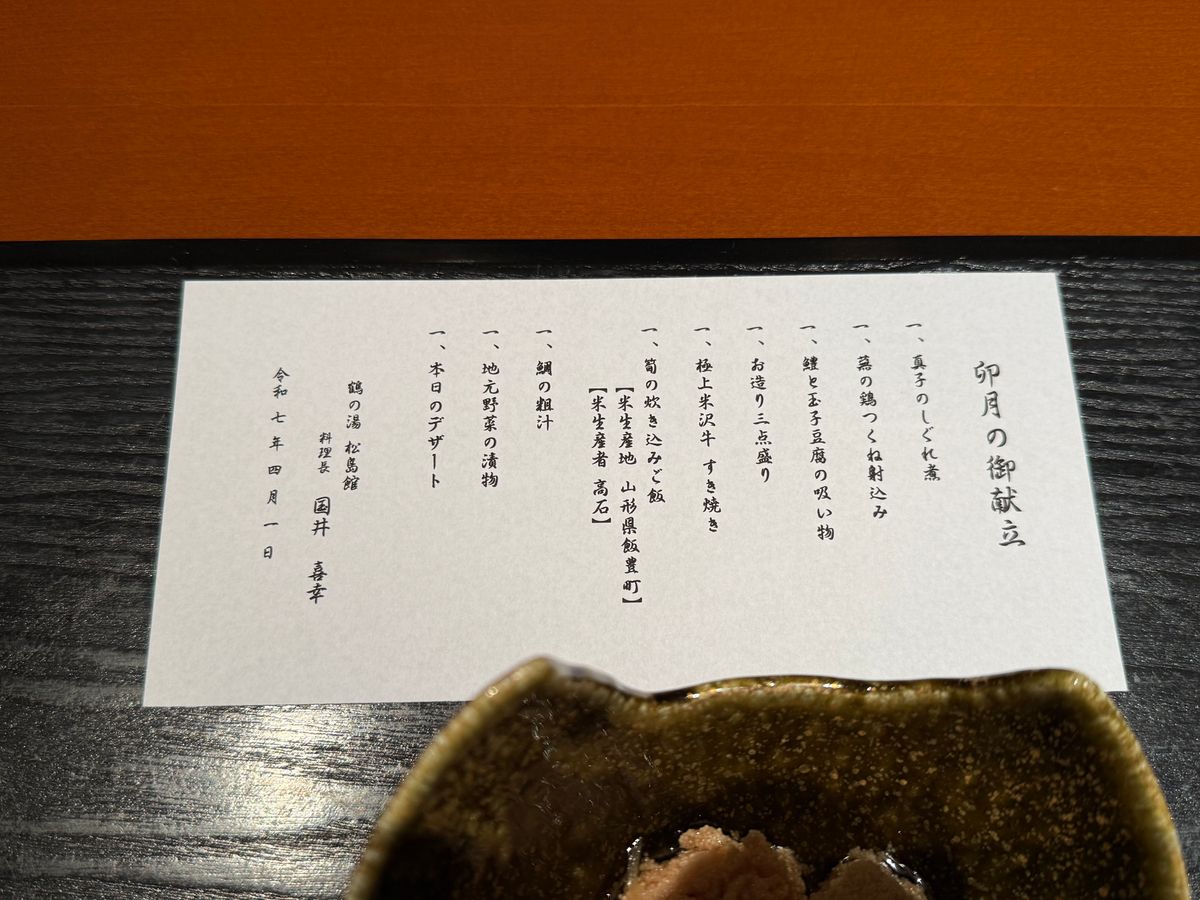 卯月の御献立
一、真子のしぐれ煮
一、蕗の鶏つくね射込み
一、鱧と玉子豆腐の吸い物
一、お造り三点盛り
一、極上米沢牛 すき焼き
一、筍の炊き込みご飯
【米生産地 山形県飯豊町】
【米生産者 高石】
一、鯛の粗汁
一、地元野菜の漬物
一、本日のデザート
鶴の湯 松島館
料理長 国井 喜幸
令和七年四月一日